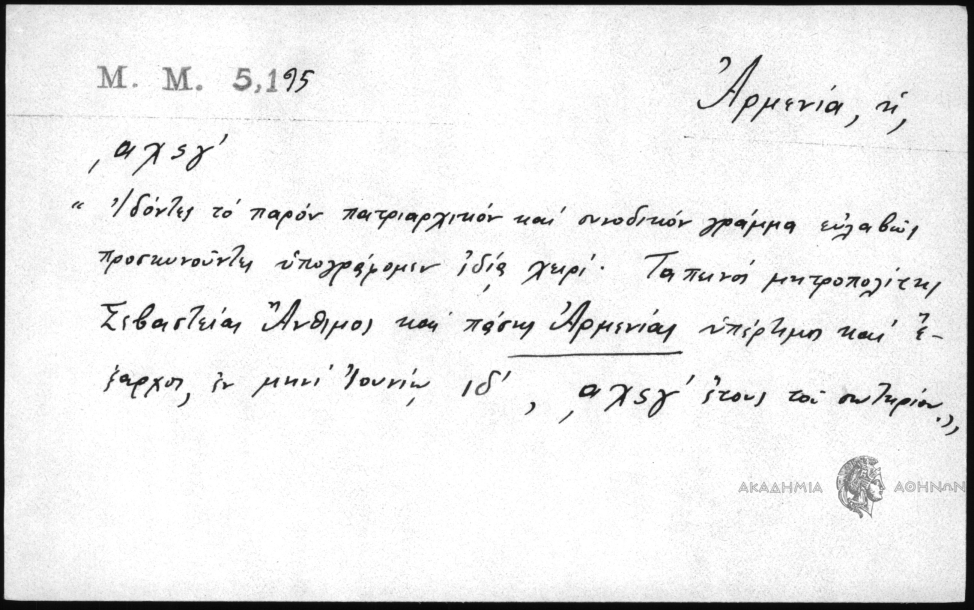 Μ. Μ. 5,195
Ἀρμενία, ἡ,
͵αχϟγʹ
"Ἰδόντες τό παρόν πατριαρχικόν καί συνοδικόν γράμμα εὐλαβῶς
προσκυνοῦντες ὑπογράφομεν ἰδίᾳ χειρί· Ταπεινός μητροπολίτης
Σεβαστείας Ἄνθιμος καί πάσης Ἀρμενίας ὑπέρτιμος καί ἔ-
ξαρχος, ἐν μηνί Ἰουνίῳ ιδʹ, ͵αχϟγʹ ἔτους τοῦ σωτηρίου."
ΑΚΑΔΗΜΙΑ ΑΘΗΝΩΝ